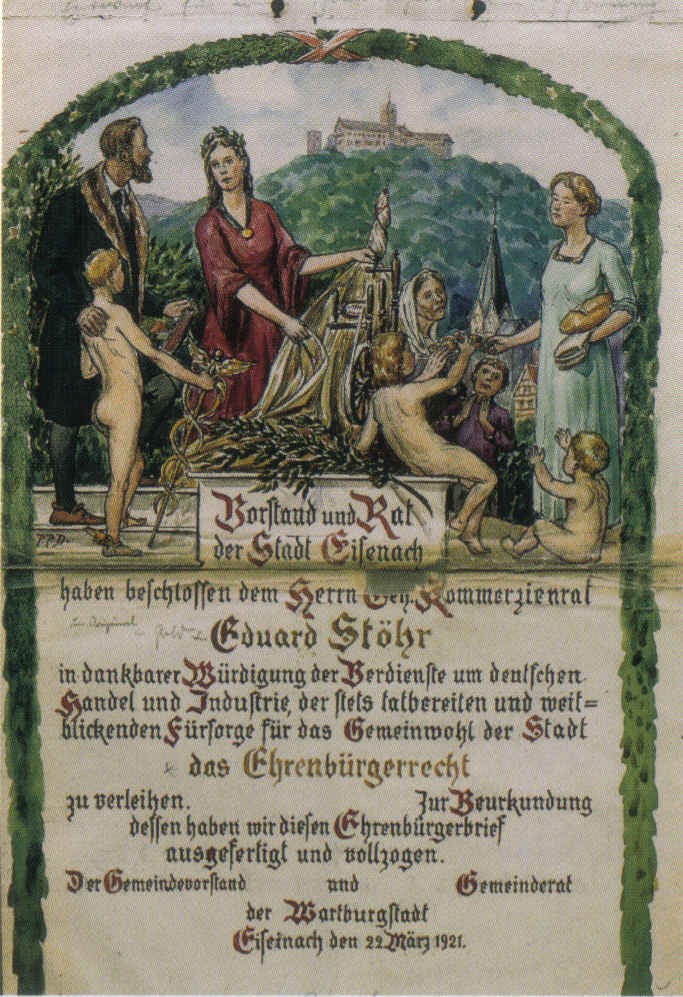 P.P.D.
Vorstand und Rat
der Stadt Eisenach
haben beschlossen dem Herrn Geh. Kommerzienrat
Eduard Stöhr
in dankbarer Würdigung der Verdienste um deutschen
Handel und Industrie, der stets tatbereiten und weit=
blickenden Fürsorge für das Gemeinwohl der Stadt
das Ehrenbürgerrecht
zu verleihen. Zur Beurkundung
dessen haben wir diesen Ehrenbürgerbrief
ausgefertigt und vollzogen.
Der Gemeindevorstand und Gemeinderat
der Wartburgstadt
Eisenach den 22. März 1921.